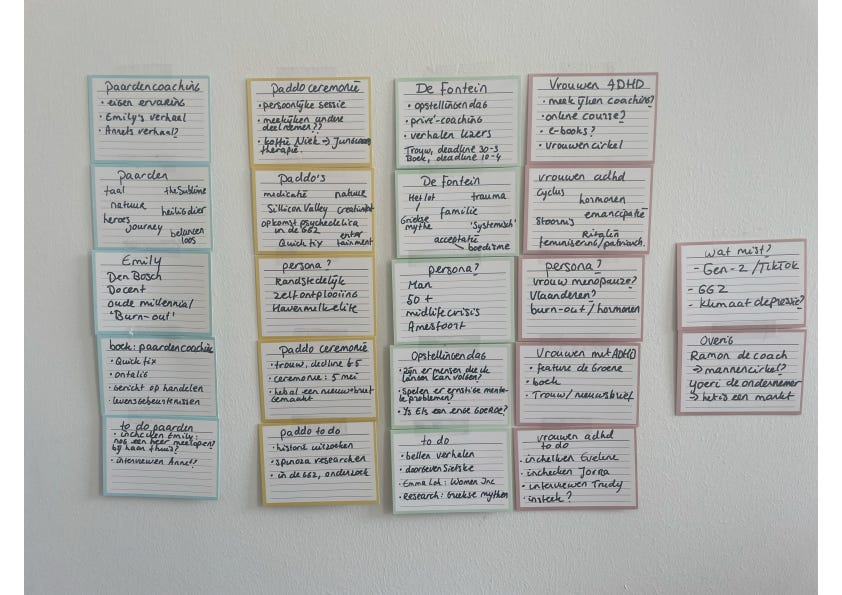 paardencoaching
• eigen ervaring
• Emily's verhaal
• Annets verhaal?
Paarden
taal the Sublime
natuur heilig dier
heroes
journey belangen
loos
Emily
Den Bosch
Docent
oude millennial
'Burn-out'
boek: paardencoaching
• Quick fix
• ontalig
• Gericht op handelen
• levensgebeurtenissen
to do paarden
• inchecken Emily:
nog een keer meelopen?
bij haar thuis?
• interviewen Annet?
Paddo ceremonie
• persoonlijke sessie
• meekijken andere
deelnemer??
• koffie Niek → Jungiaanse
therapie.
Paddo's
medicatie natuur
Sillicon Valley creativiteit
opkomst psychedelica
in de GGZ enter
Quick fix tainment
persona?
Randstedelijk
zelfontplooiing
Havermelkelite
Paddo ceremonie
• trouw, dedline 6-5
• ceremonie: 5 mei
• heb al een nieuwsbrief
gemaakt
paddo to do
• historie uitzoeken
• spinoza researchen
• in de GGZ, onderzoek
De Fontein
• opstellingendag
• privé-coaching
• verhalen lezers
Trouw, deadline 30-3
Boek, deadline 10-4
De Fontein
Het lot trauma
Griekse familie
mythe 'Systemisch'
acceptatie
boedisme
persona?
Man
50+
midlifecrisis
Amersfoort
Opstellingendag
• zijn er mensen die ik
langer kan volgen?
• Spelen er ernstige menta-
le problemen?
• Is Els een enge goeroe?
to do
• bellen verhalen
• doorgeven Sietske
• Emma Lok: Women Inc
• Research: Griekse mythen
Vrouwen ADHD
• meekijken coaching?
• online course?
• e-books?
• vrouwencirkel
vrouwen adhd
Cyclus hormonen
stoornis emancipatie
Ritalin
feminisering/patriarch.
persona?
vrouw menopauze?
Vlaanderen?
burn-out/hormonen
Vrouwen met ADHD
• feature de Groene
• boek
• Trouw/nieuwsbrief
vrouwen adhd
to do
• inchecken Eveline
• inchecken Jorra
• interviewen Trudy
• insteek?
wat mist?
- Gen-Z/TikTok
- GGZ
- klimaat depressie?
Overig
Ramon de coach
→ mannencirkel?
Yoeri de ondernemer
→ het is een markt